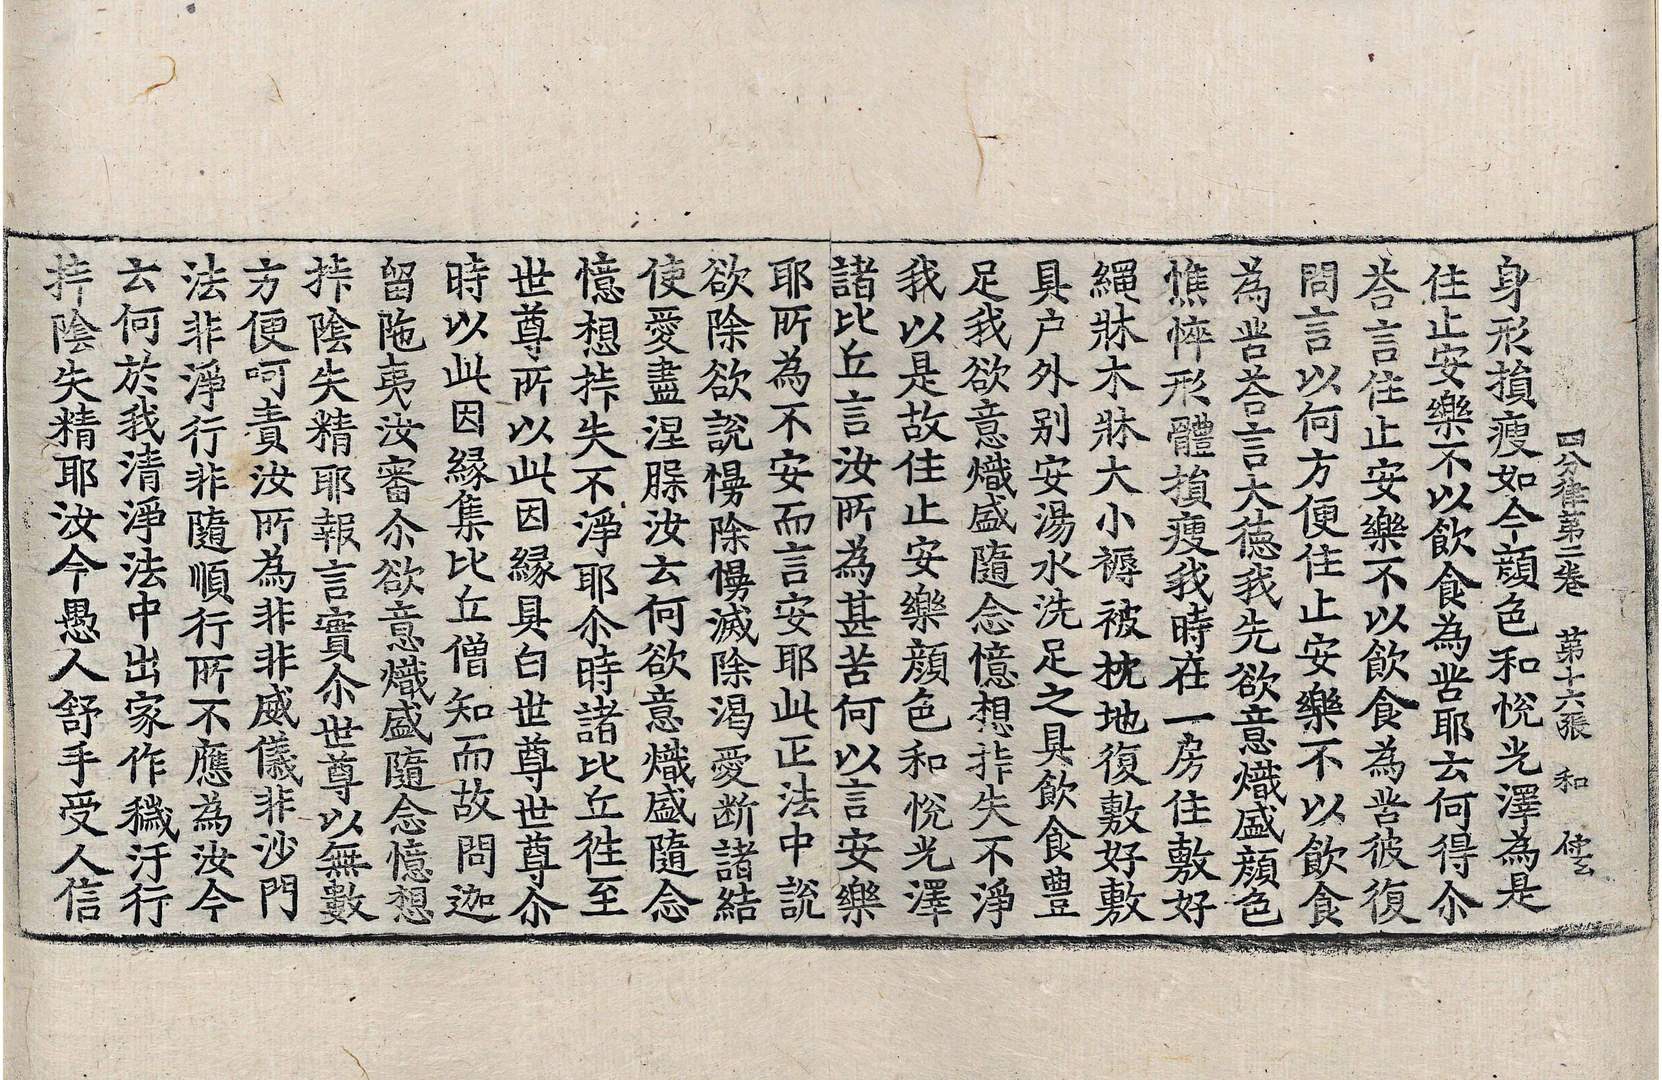 四分律第二卷　第十六張　和　傅
身形損瘦如今顔色和悅光澤為是
住止安樂不以飲食為苦耶云何得尒
荅言住止安樂不以飲食為苦彼復
問言以何方便住止安樂不以飲食
為苦荅言大德我先欲意熾盛顔色
憔悴形體損瘦我時在一房住敷好
繩牀木牀大小褥被枕地復敷好敷
具户外别安湯水洗足之具飲食豊
足我欲意熾盛隨念憶想弄失不淨
我以是故住止安樂顔色和悅光澤
諸比丘言汝所為甚苦何以言安樂
耶所為不安而言安耶此正法中說
欲除欲說慢除慢滅除渴愛断諸結
使愛盡涅槃汝云何欲意熾盛隨念
憶想弄失不淨耶尒時諸比丘徃至
世尊所以此因緣具白世尊世尊尒
時以此因緣集比丘僧知而故問迦
留陁夷汝審尒欲意熾盛隨念憶想
弄陰失精耶報言實尒世尊以無數
方便呵責汝所為非非威儀非沙門
法非淨行非隨順行所不應為汝今
云何於我清淨法中出家作穢汙行
弄陰失精耶汝今愚人舒手受人信